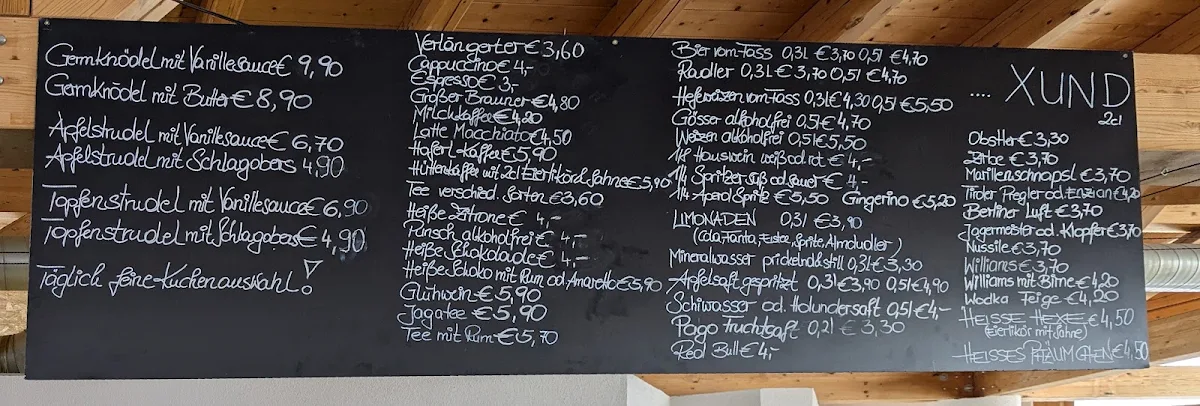 Germknödel mit Vanillesauce € 9,90
Germknödel mit Butter € 8,90
Apfelstrudel mit Vanillesauce € 6,70
Apfelstrudel mit Schlagobers 4,90
Topfenstrudel mit Vanillesauce € 6,90
Topfenstrudel mit Schlagobers € 4,90
Täglich feine Kuchenauswahl!
Verlängerter € 3,60
Cappuccino € 4,-
Espresso € 3,-
Großer Brauner € 4,80
Milchkaffee € 4,20
Latte Macchiato € 4,50
Haferl-Kaffee € 5,90
Hüttenkaffee mit 2cl Eierlikör & Sahne € 5,90
Tee verschied. Sorten € 3,60
Heiße Zitrone € 4,-
Punsch alkoholfrei € 4,-
Heiße Schokolade € 4,-
Heiße Schoko mit Rum od. Amaretto € 5,90
Glühwein € 5,90
Jagatee € 5,90
Tee mit Rum € 5,70
Bier vom Fass 0,3l € 3,70 0,5l € 4,70
Radler 0,3l € 3,70 0,5l € 4,70
Hefeweizen vom Fass 0,3l € 4,30 0,5l € 5,50
Gösser alkoholfrei 0,5l € 4,70
Weizen alkoholfrei 0,5l € 5,50
1/8 Hauswein weiß od. rot € 4,-
1/4 Spritzer süß od. sauer € 4,-
1/4 Aperol Spritz € 5,50 Gingerino € 5,20
LIMONADEN 0,3l € 3,90
(Cola, Fanta, Sprite, Almdudler)
Mineralwasser prickelnd & still 0,3l € 3,30
Apfelsaft gespritzt 0,3l € 3,90 0,5l € 4,90
Schiwasser od. Holundersaft 0,5l € 4,-
Pago Fruchtsaft 0,2l € 3,30
Red Bull € 4,-
.... XUND
2cl
Obstler € 3,30
Zirbe € 3,70
Marillenschnapsl € 3,70
Tiroler Kregler od. Enzian € 4,20
Berliner Luft € 3,70
Jagermeister od. Klopfer € 3,70
Nussile € 3,70
Williams € 3,70
Williams mit Birne € 4,20
Wodka Feige € 4,20
HEISSE HEXE € 4,50
(Eierlikör mit Sahne)
HEISSES PFLÄUMCHEN € 4,50